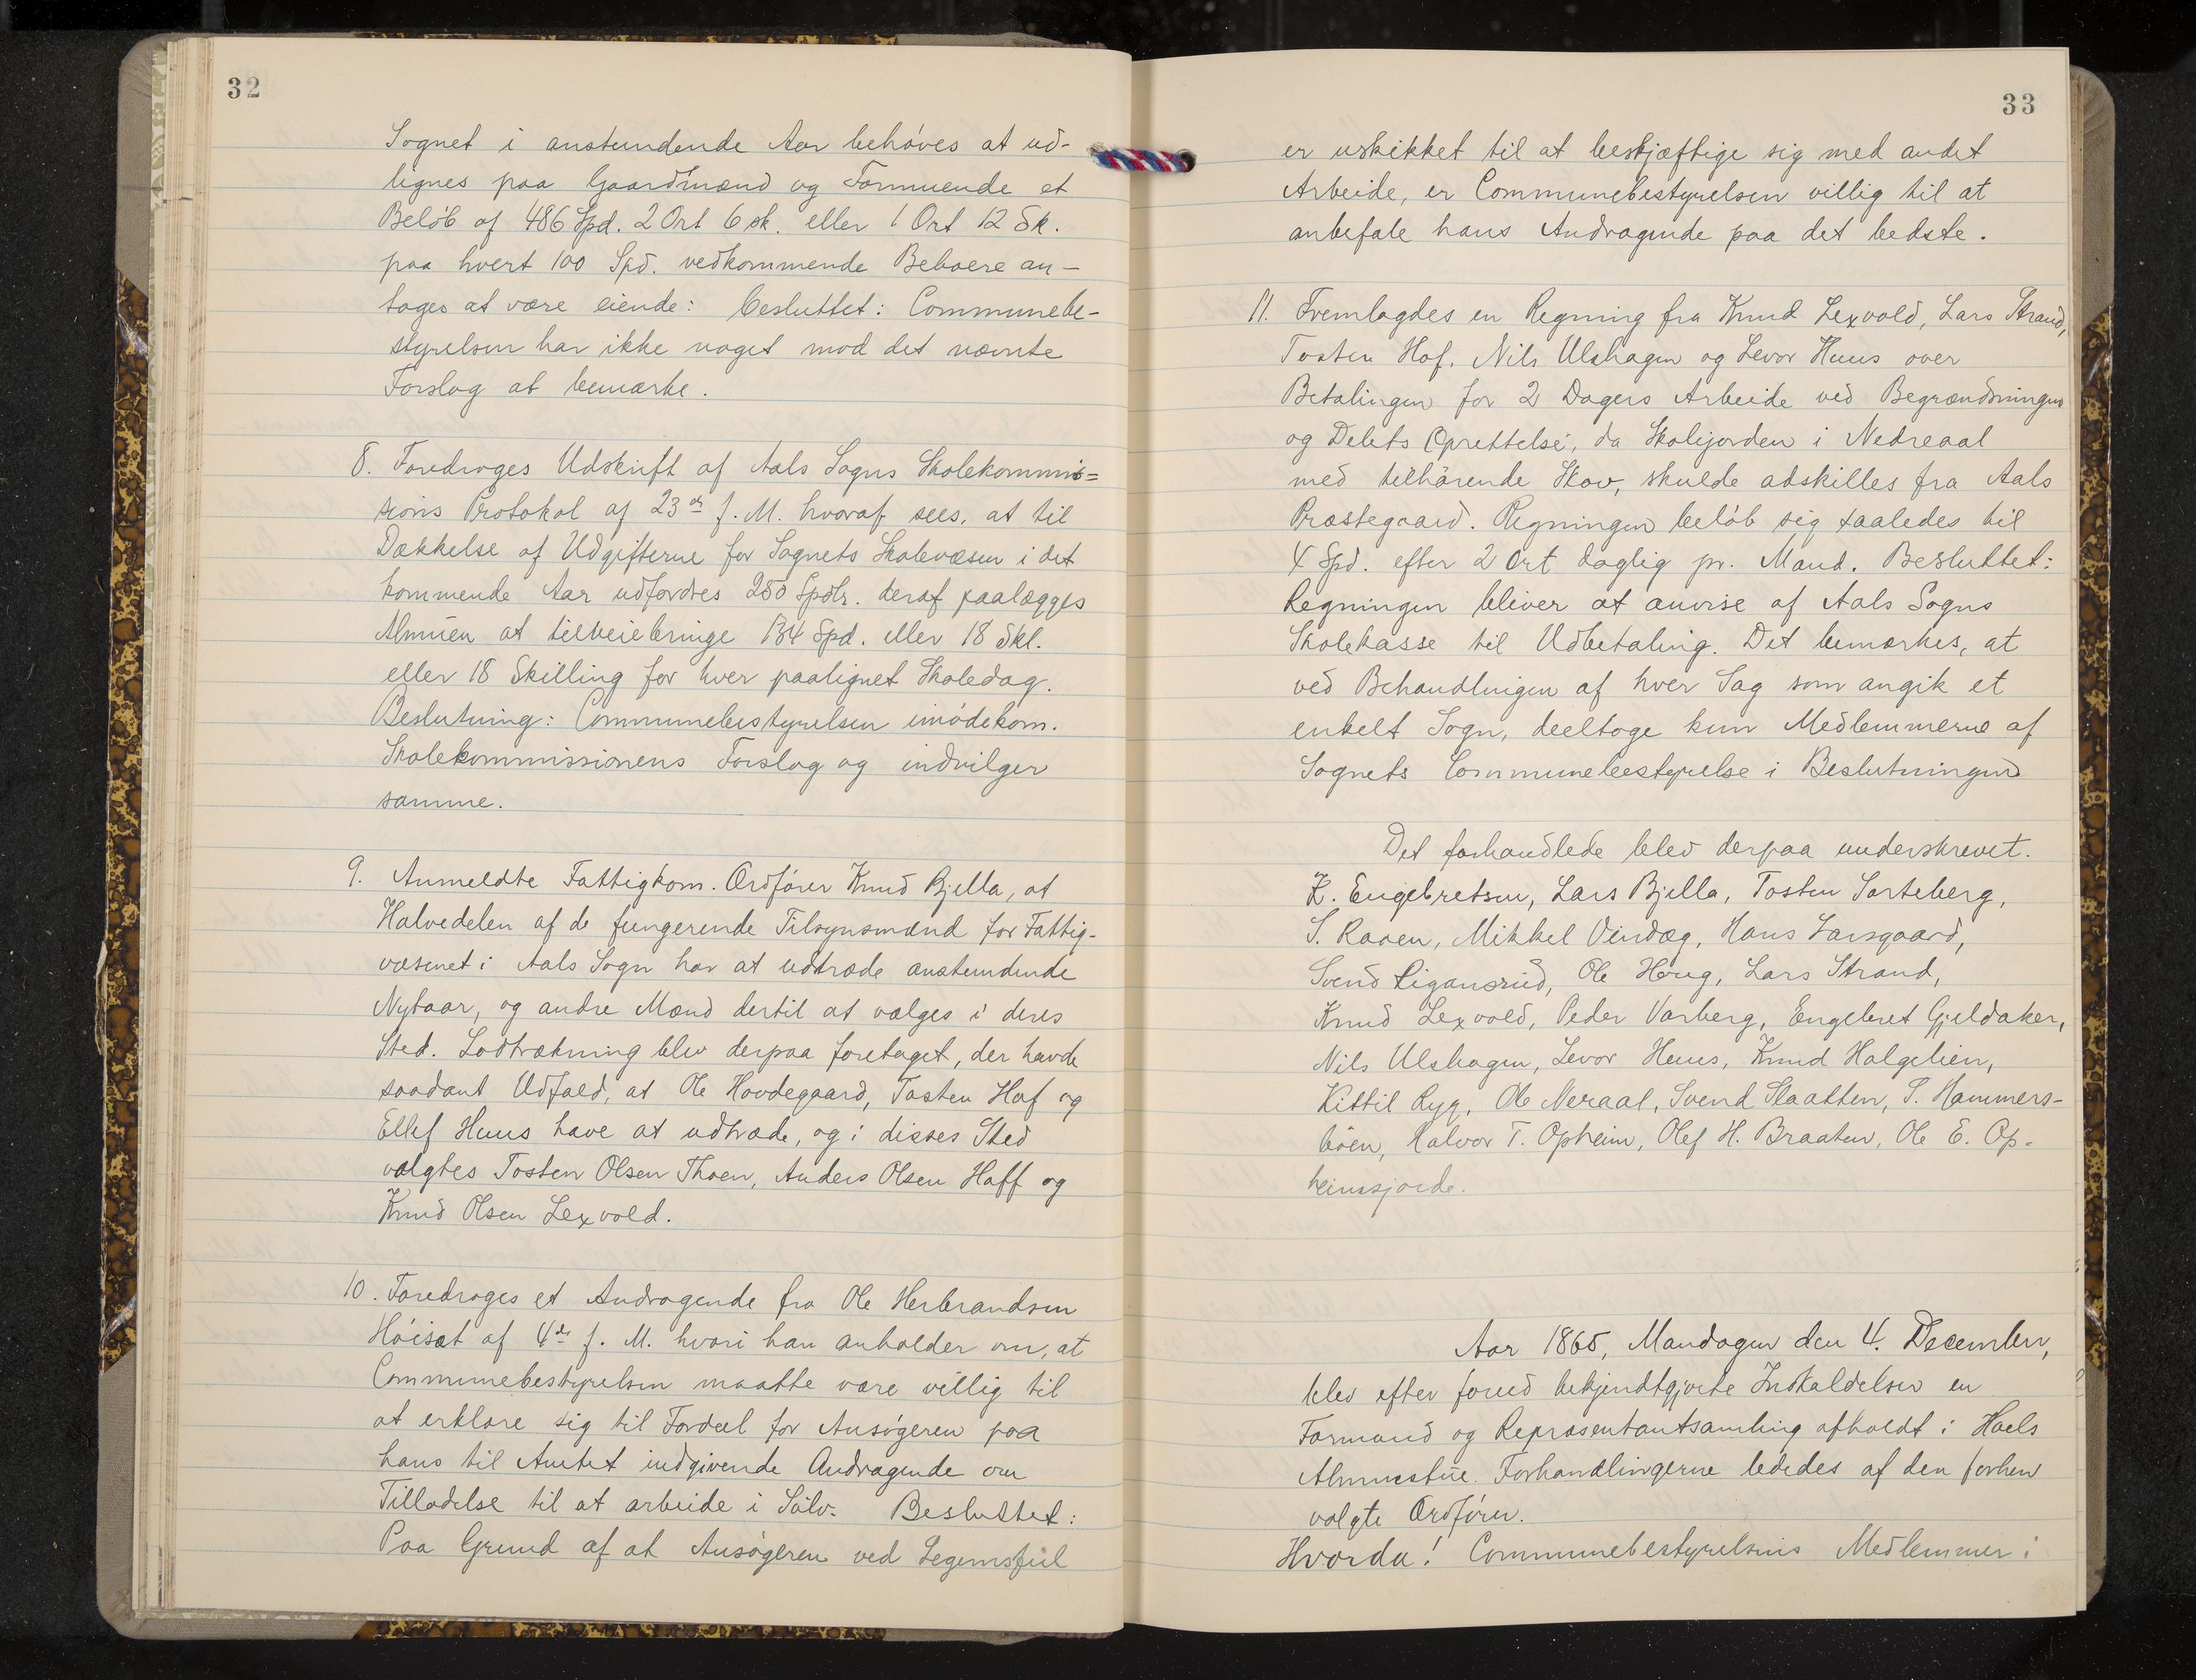 32
Sognet i anstundende Aar behøves at ud-
lignes paa Gaardmænd og Formuende et
Beløb af 486 Spd. 2 Ort 6 sk. eller 1 Ort 12 Sk.
paa hvert 100 Spd. vedkommende Beboere an-
tages at være eiende: besluttet: Communebe-
styrelsen har ikke noget mod det nævnte
Forslag at bemærke.
8. Foredroges Udskrift af Aals Sogns Skolekommis=
sions Protokol af 23de f. M. hvoraf sees, at til
Dækkelse af Udgifterne for Sognets Skolevæsen i det
kommende Aar udfordres 250 Spdlr. deraf paalægges
Almuen at tilveiebringe 134 Spd. eller 18 Skl.
eller 18 Skilling for hver paalignet Skoledag.
Beslutning: Communebestyrelsen imødekom.
Skolekommissionens Forslag og indvilger
samme.
9. Anmeldte Fattigkom. Ordfører Knud Bjella, at
Halvedelen af de fungerende Tilsynsmænd for Fattig-
væsenet i Aals Sogn har at udtræde anstundende
Nytaar, og andre Mænd dertil at vælges i deres
Sted. Lodtrækning blev derpaa foretaget, der havde
saadant Udfald, at Ole Hovdegaard, Tosten Hof og
Ellef Huus have at udtræde, og i disses Sted
valgtes Tosten Olsen Thoen, Anders Olsen Hoff og
Knud Olsen Lexvold.
10. Foredroges et Andragende fra Ole Herbrandsen
Høisæt af 4de f. M. hvori han anholder om, at
Communebestyrelsen maatte være villig til
at erklære sig til Fordeel for Ansøgeren paa
hans til Amtet indgivende Andragende om
Tilladelse til at arbeide i Sølv. Besluttet:
Paa Grund af at Ansøgeren ved Legemsfeil
33
er uskikket til at beskjæftige sig med andet
Arbeide, er Communebestyrelsen villig til at
anbefale hans Andragende paa det bedste.
11. Fremlagdes en Regning fra Knud Lexvold, Lars Strand,
Tosten Hof, Nils Ulshagen og Levor Huus over
Betalingen for 2 Dagers Arbeide ved Begrændsningen
og Delets Oprettelse, da Skolejorden i Nedreaal
med tilhørende Skov, skulde adskilles fra Aals
Præstegaard. Regningen beløb sig saaledes til
4 Spd. efter 2 Ort daglig pr. Mand. Besluttet:
Regningen bliver at anvise af Aals Sogns
Skolekasse til Udbetaling. Det bemærkes, at
ved Behandlingen af hver Sag som angik et
enkelt Sogn, deeltoge kun Medlemmerne af
Sognets Communebestyrelse i Beslutningen
Det forhandlede blev derpaa underskrevet.
K. Engebretsen, Lars Bjella, Tosten Sorteberg,
S. Raaen, Mikkel Vindæg, Hans Larsgaard,
Svend Rigansrud, Ole Houg, Lars Strand,
Knud Lexvold, Peder Varberg, Engebret Gjeldaker,
Nils Ulshagen, Levor Huus, Knud Holgelien,
Kittil Ryg, Ole Neraal, Svend Slaatten, P. Hammers-
bøen, Halvor T. Opheim, Olef H. Braaten, Ole E. Op-
heimsjorde.
Aar 1865, Mandagen den 4. December,
blev efter forud bekjendtgjorte Indkaldelser en
Formand og Repræsentantsamling afholdt i Hoels
Almuestue. Forhandlingerne lededes af den forhen
valgte Ordfører.
Hvorda! Communebestyrelsens Medlemmer i